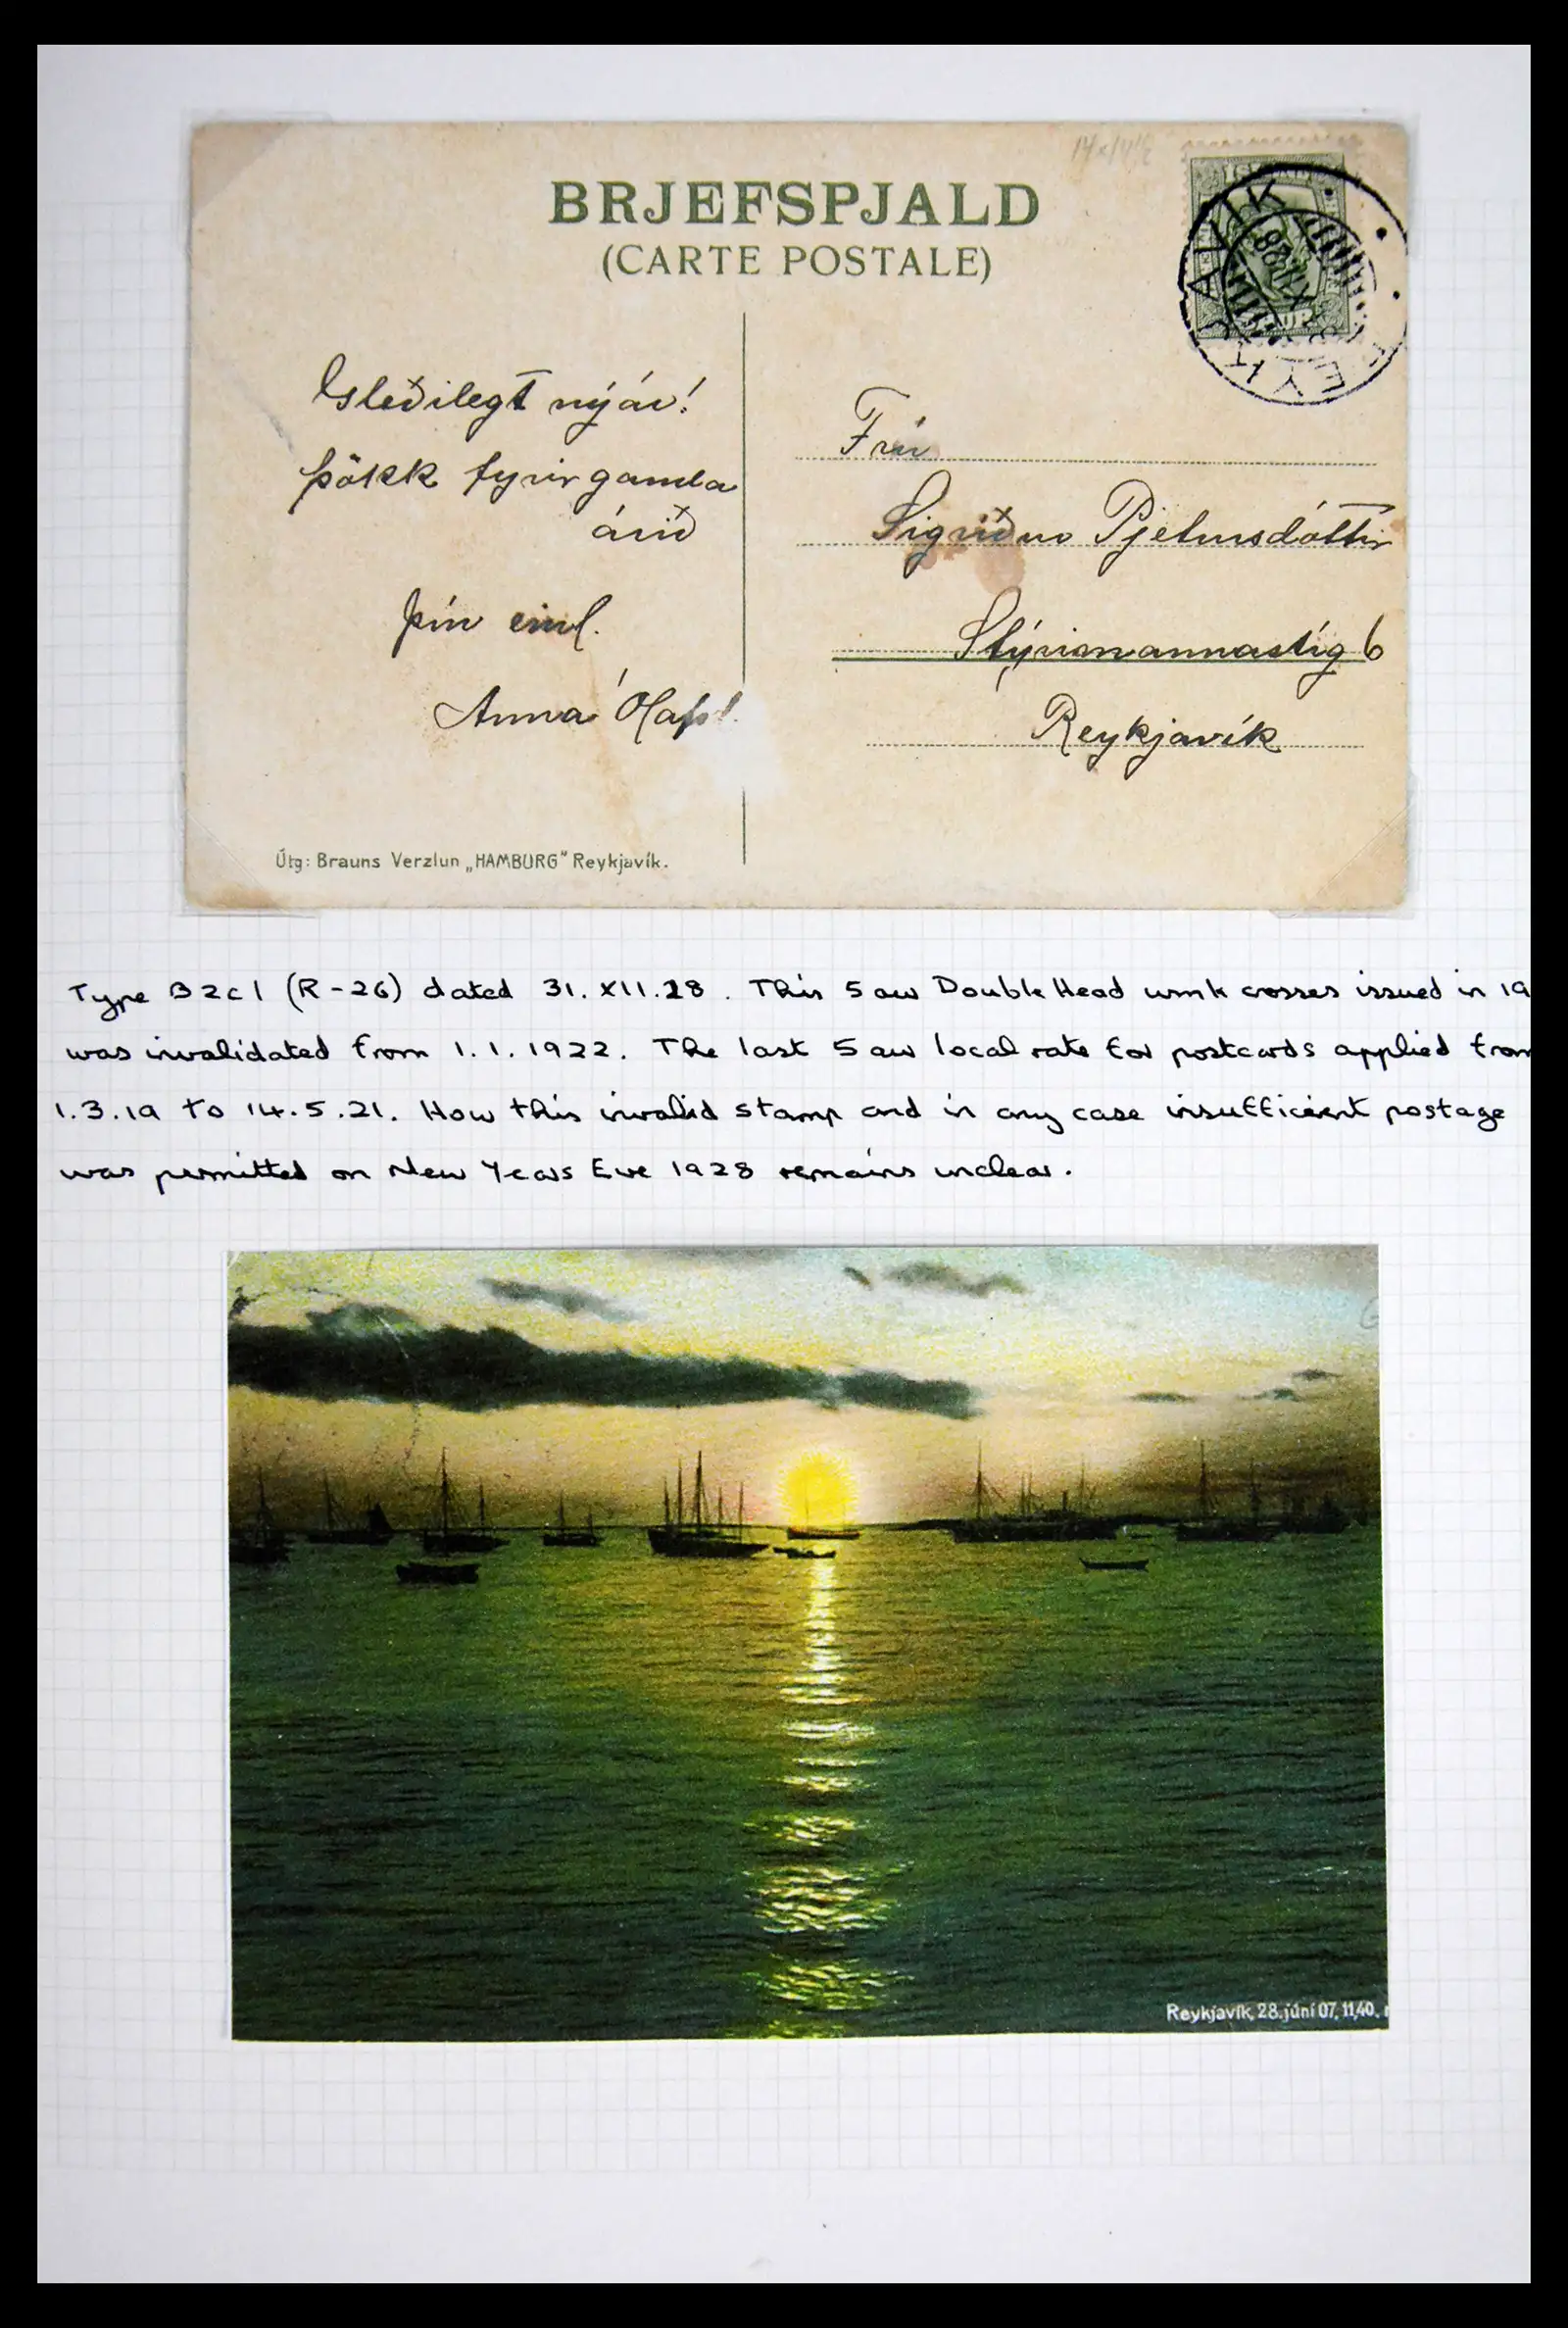 14x14½
BRJEFSPJALD
(CARTE POSTALE)
REYKJAVIK
AUR
Gleðilegt nýár!
Þökk fyrir gamla
árið
Þín einl.
Anna Ólafs
Frú
Sigríður Pjetursdóttir
Stýrimannastíg 6
Reykjavík
Útg: Brauns Verzlun „HAMBURG" Reykjavík.
Type B2c1 (R-26) dated 31.XII.28. This 5 aur Double Head wmk crosses issued in 19
was invalidated from 1.1.1922. The last 5 aur local rate for postcards applied from
1.3.19 to 14.5.21. How this invalid stamp and in any case insufficient postage
was permitted on New Years Eve 1928 remains unclear.
Reykjavík, 28. júní 07, 11,40.